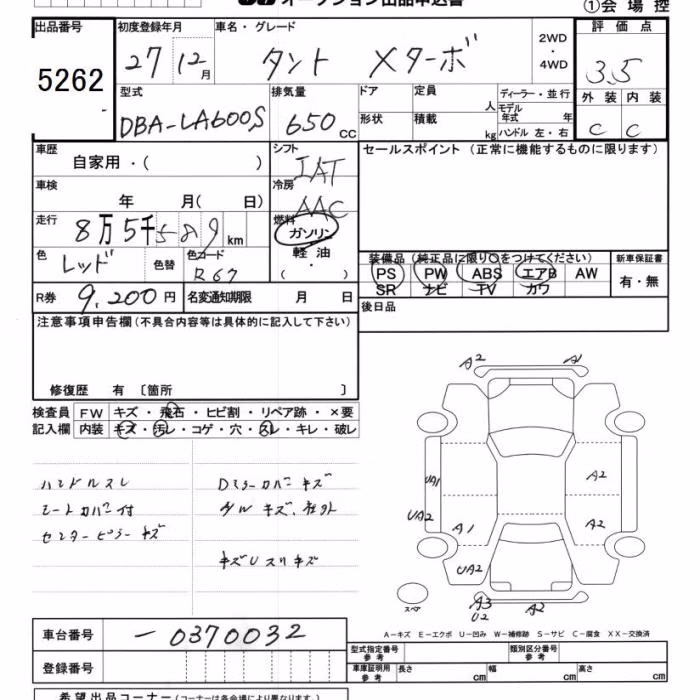 オークション出品申込書 ①会場控
出品番号 初度登録年月 車名・グレード 評価点
5262 27 12月 タント Xターボ 2WD・4WD 3.5
型式 排気量 ドア 定員 人 ディーラー・並行 外装 内装
DBA-LA600S 650cc 形状 積載 kg モデル年式 年 ハンドル 左・右 C C
車歴 自家用・( ) シフト IAT セールスポイント (正常に機能するものに限ります)
車検 年 月( 日) 冷房 AAC
走行 8万5千589km 燃料 ガソリン
軽油
( ・ )
色 レッド 色替 色コード R67
装備品 (純正品に限り○をつけてください) 新車保証書
PS PW ABS エアB AW 有・無
SR ナビ TV カワ
R券 9,200円 名変通知期限 月 日 後日品
注意事項申告欄(不具合内容等は具体的に記入して下さい)
修復歴 有 〔箇所 〕
検査員 FW キズ・飛石・ヒビ割・リペア跡・×要
記入欄 内装 キズ・汚レ・コゲ・穴・スレ・キレ・破レ
ハンドルスレ Dミラーカバーキズ
シートカバー付 グルキズ、社外
センターピラーキズ
キズUスリキズ
A2 A1
UA1 A2
UA2 A1 A2
UA2
スペア A3 A2
U2
A-キズ E-エクボ U-凹み W-補修跡 S-サビ C-腐食 XX-交換済
車台番号 -0370032 型式指定番号 参考 類別区分番号 参考
登録番号 車庫証明用 参考 長さ cm 幅 cm 高さ cm
希望出品コーナー (コーナーは各会場により異なります)